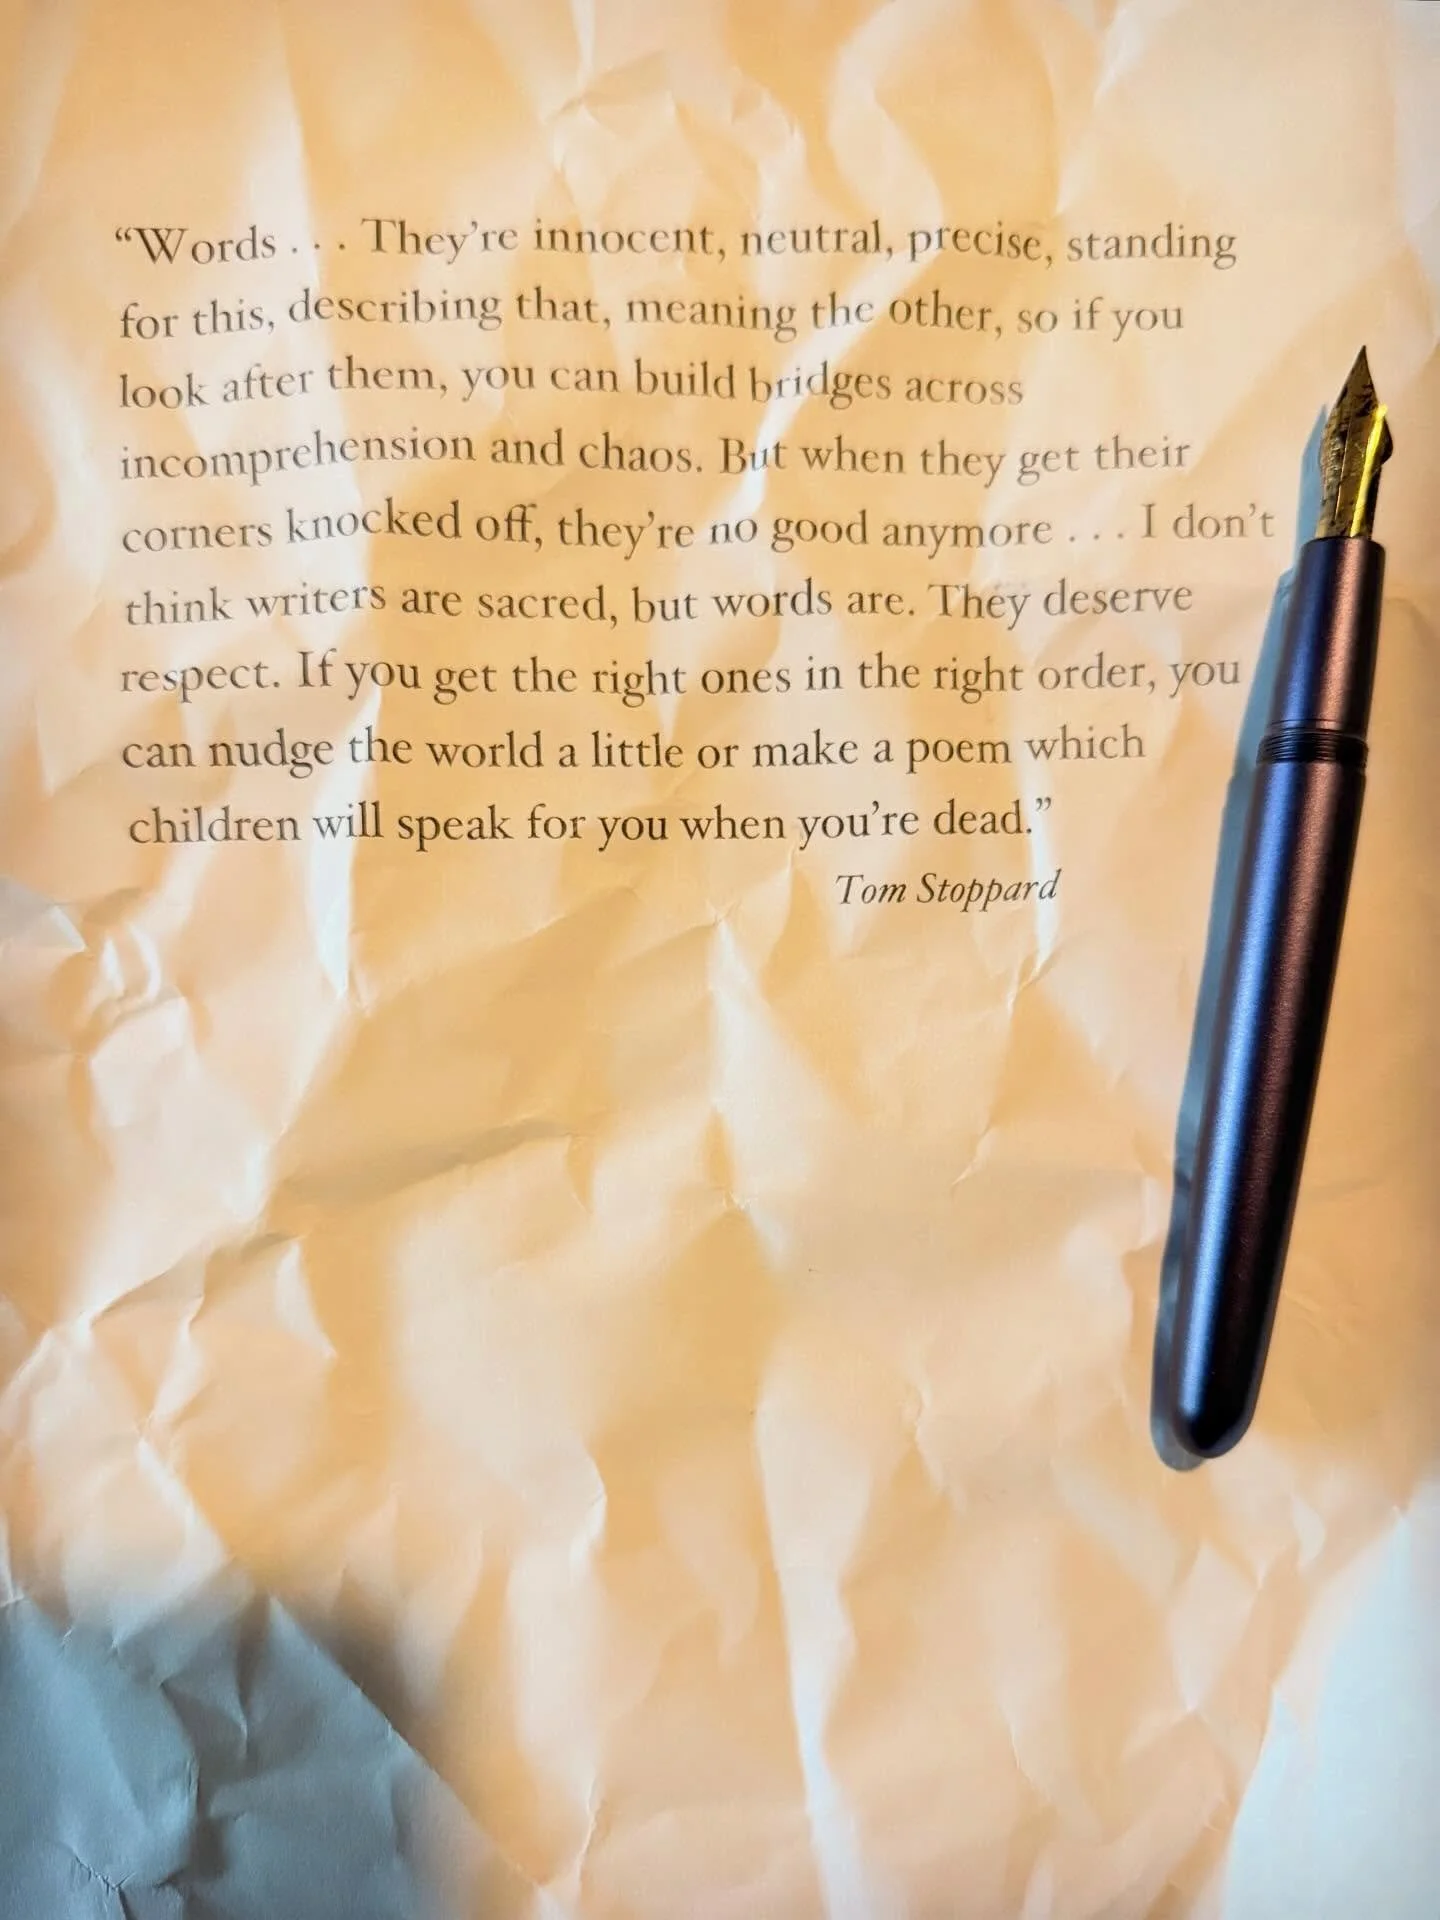 “Words . . . They’re innocent, neutral, precise, standing
for this, describing that, meaning the other, so if you
look after them, you can build bridges across
incomprehension and chaos. But when they get their
corners knocked off, they’re no good anymore . . . I don’t
think writers are sacred, but words are. They deserve
respect. If you get the right ones in the right order, you
can nudge the world a little or make a poem which
children will speak for you when you’re dead.”
Tom Stoppard